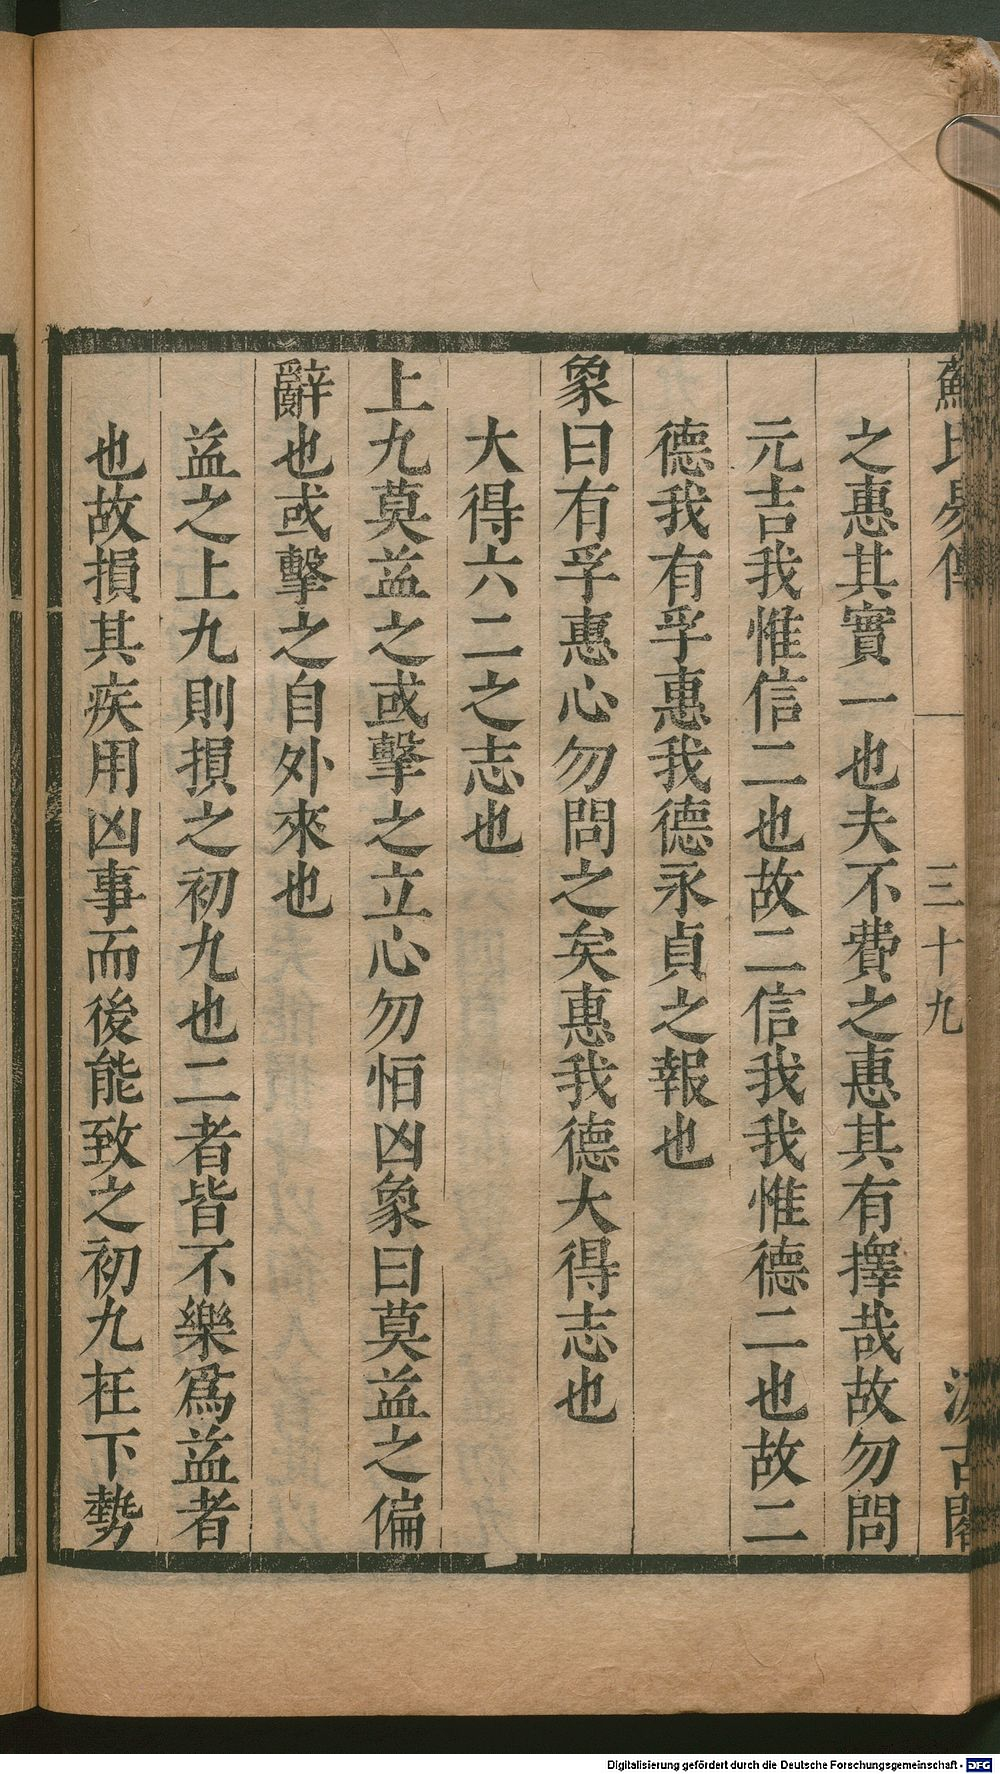 蘇氏易傳 三十九 汲古閣
之惠其實一也夫不費之惠其有擇哉故勿問
元吉我惟信二也故二信我我惟德二也故二
德我有孚惠我德永貞之報也
象曰有孚惠心勿問之矣惠我德大得志也
大得六二之志也
上九莫益之或擊之立心勿恒凶象曰莫益之偏
辭也或擊之自外來也
益之上九則損之初九也二者皆不樂爲益者
也故損其疾用凶事而後能致之初九在下勢
Digitalisierung gefördert durch die Deutsche Forschungsgemeinschaft - DFG